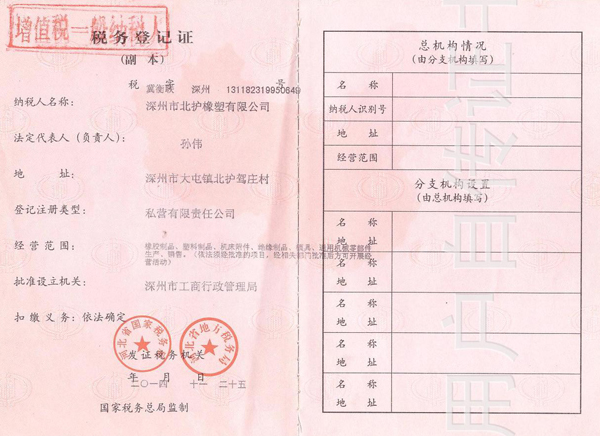 增值税一般纳税人
税务登记证
(副 本)
税 字 号
冀衡联 深州 131182319950649
纳税人名称: 深州市北护橡塑有限公司
法定代表人(负责人): 孙伟
地 址: 深州市大屯镇北护驾庄村
登记注册类型: 私营有限责任公司
经营范围: 橡胶制品、塑料制品、机床附件、绝缘制品、模具、通用机械零部件
生产、销售。(依法须经批准的项目,经相关部门批准后方可开展经
营活动)
批准设立机关: 深州市工商行政管理局
扣缴义务: 依法确定
河北省国家税务局
河北省地方税务局
发证税务机关
年 月 日
二〇一四 十一 二十五
国家税务总局监制
总机构情况
(由分支机构填写)
名 称
纳税人识别号
地 址
经营范围
分支机构设置
(由总机构填写)
名 称
地 址
名 称
地 址
名 称
地 址
名 称
地 址
名 称
地 址
用户自传证书